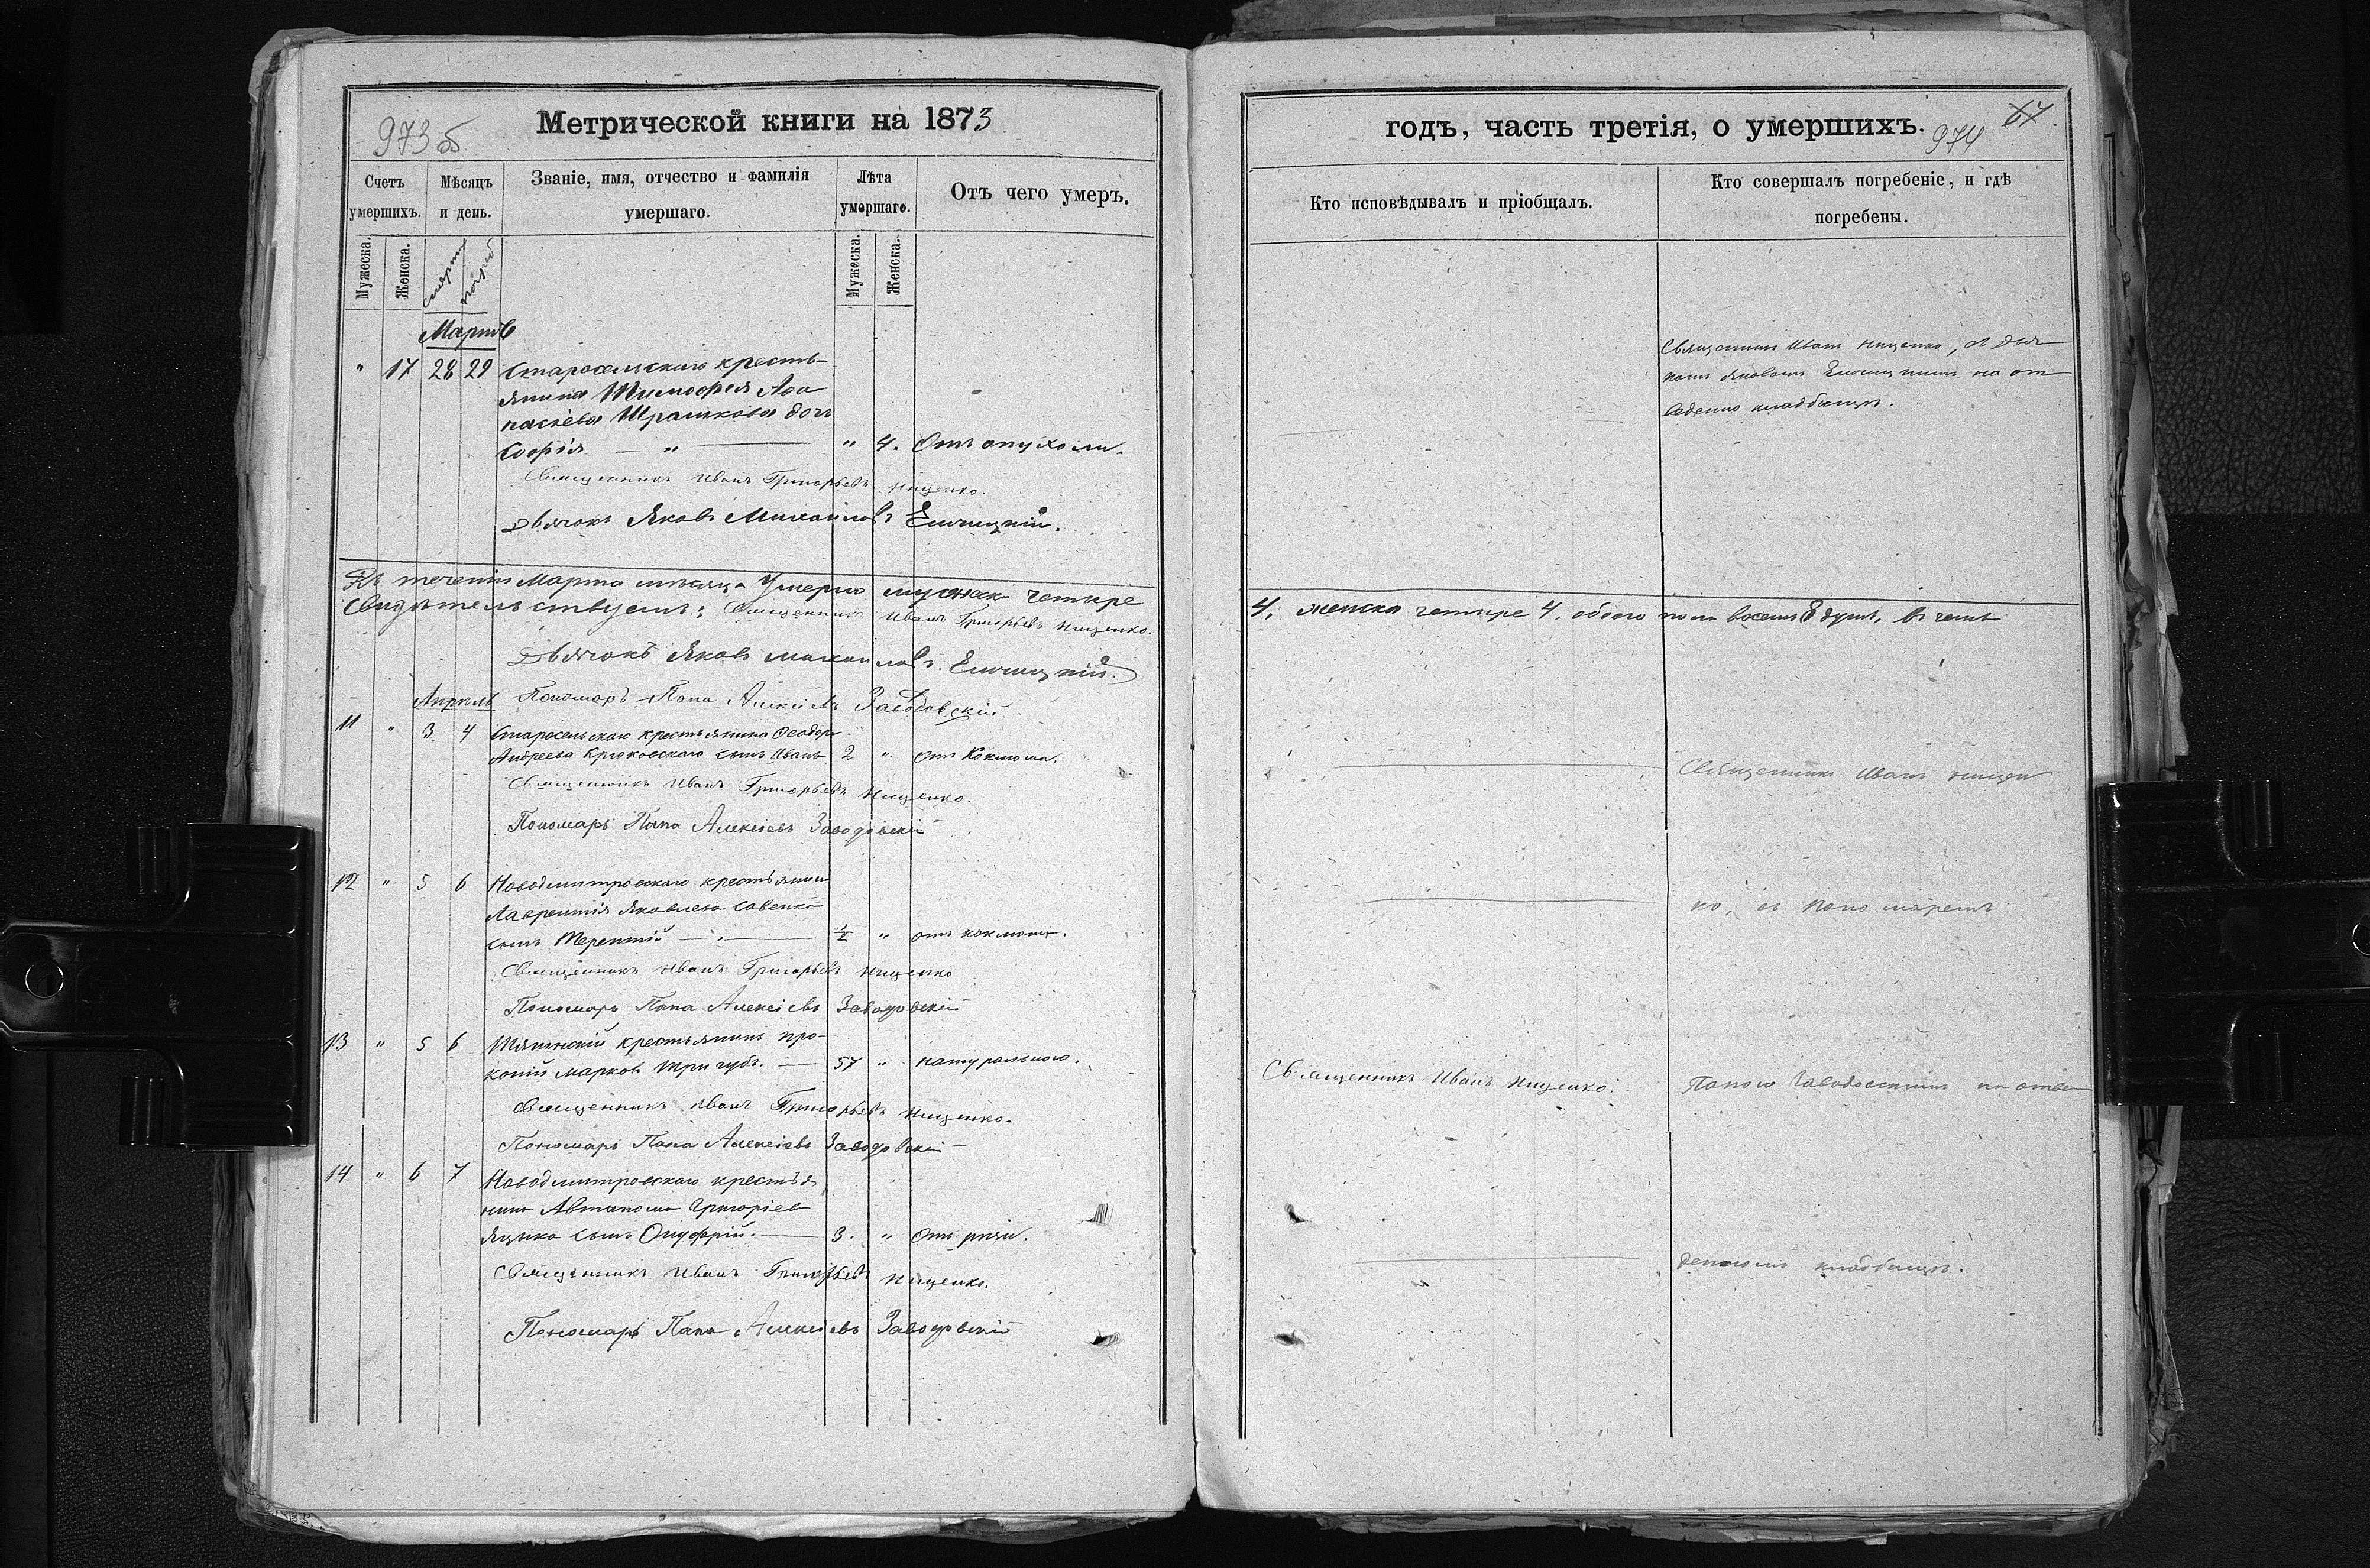 Метрической книги на 1873
973 об
Счетъ умершихъ.
Мѣсяцъ и день.
Званіе, имя, отчество и фамилія умершаго.
Лѣта умершаго.
Отъ чего умеръ.
Мужеска.
Женска.
смерти
погреб
Мужеска.
Женска.
Мартъ
" 17 28 29 Старосельскаго кресть-
янина Тимофея Аѳа
насіева дочь
Софія — " — " 4. Отъ опухоли.
Священникъ Иванъ Григорьевъ Нищенко.
Дьячокъ Яковъ Михаиловъ
Въ теченіи Марта мѣсяца Умерло мужеск четыре
Свидѣтельствуемъ: Священникъ Иванъ Григорьевъ Нищенко.
Дьячокъ Яковъ Михаиловъ
Апрель Пономарь Папа Алексіевъ Заводовскій
11 " 3 4 Старосельскаго крестьянина Ѳеодора
Андреева Крюковскаго сынъ Иванъ 2 " отъ Коклюша.
Священникъ Иванъ Григорьевъ Нищенко.
Пономарь Папа Алексіевъ Заводовскій
12 " 5 6 Новодмитровскаго крестьянина
Лаврентія Яковлева Савенка
сынъ Терентій — " — 1/2 " отъ коклюша.
Священникъ Иванъ Григорьевъ Нищенко
Пономарь Папа Алексіевъ Заводовскій
13 " 5 6 крестьянинъ Про-
копій Марковъ Тригубъ. — 57 " натурально.
Священникъ Иванъ Григорьевъ Нищенко.
Пономарь Папа Алексіевъ Заводовскій
14 " 6 7 Новодмитровскаго крестья
нина Автонома Григоріева
Яценка сынъ Онуфрій. — 3. " Отъ
Священникъ Иванъ Григорьевъ Нищенко.
Пономарь Папа Алексіевъ Заводовскій
годъ, часть третія, о умершихъ.
974
Кто исповѣдывалъ и пріобщалъ.
Кто совершалъ погребеніе, и гдѣ погребены.
Священникъ Иванъ Нищенко, съ дья
комъ Яковомъ на от
ведено кладбищѣ.
4, женска четыре 4, обоего пола восемь 8 душъ, въ чемъ
Священникъ Иванъ Нищен
ко, съ пономаремъ
Священникъ Иванъ Нищенко.
Папою Заводовскимъ на отве
деномъ кладбищѣ.